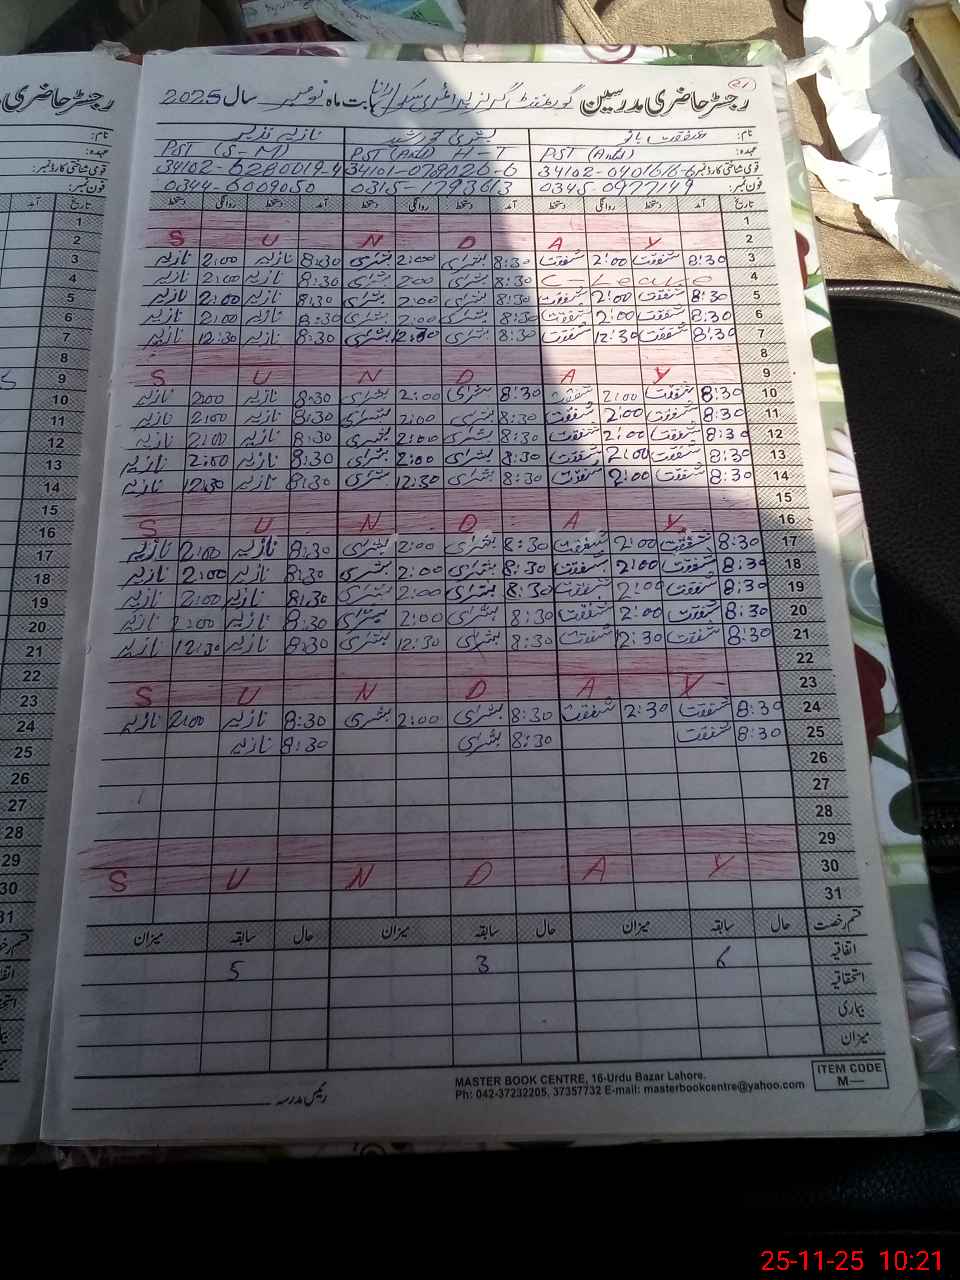 رجسٹر حاضری مدرسین گورنمنٹ گرلز پرائمری سکول بابت ماہ نومبر سال 2025
نام: شفقت بانو بشریٰ خورشید نازیہ نذیر
عہدہ: PST (And) PST (And) H-T PST (S-M)
قومی شناختی کارڈ نمبر: 34102-0401616-6 34101-0789026-6 34102-6280019-4
فون نمبر: 0345-0977149 0315-1793613 0344-6009050
تاریخ آمد دستخط روانگی دستخط آمد دستخط روانگی دستخط آمد دستخط روانگی دستخط
1
2 S U N D A Y
3 8:30 شفقت 2:00 شفقت 8:30 بشریٰ 2:00 بشریٰ 8:30 نازیہ 2:00 نازیہ
4 C-Leave 8:30 بشریٰ 2:00 بشریٰ 8:30 نازیہ 2:00 نازیہ
5 8:30 شفقت 2:00 شفقت 8:30 بشریٰ 2:00 بشریٰ 8:30 نازیہ 2:00 نازیہ
6 8:30 شفقت 2:00 شفقت 8:30 بشریٰ 2:00 بشریٰ 8:30 نازیہ 2:00 نازیہ
7 8:30 شفقت 12:30 شفقت 8:30 بشریٰ 12:30 بشریٰ 8:30 نازیہ 12:30 نازیہ
8
9 S U N D A Y
10 8:30 شفقت 2:00 شفقت 8:30 بشریٰ 2:00 بشریٰ 8:30 نازیہ 2:00 نازیہ
11 8:30 شفقت 2:00 شفقت 8:30 بشریٰ 2:00 بشریٰ 8:30 نازیہ 2:00 نازیہ
12 8:30 شفقت 2:00 شفقت 8:30 بشریٰ 2:00 بشریٰ 8:30 نازیہ 2:00 نازیہ
13 8:30 شفقت 2:00 شفقت 8:30 بشریٰ 2:00 بشریٰ 8:30 نازیہ 2:00 نازیہ
14 8:30 شفقت 2:00 شفقت 8:30 بشریٰ 12:30 بشریٰ 8:30 نازیہ 12:30 نازیہ
15
16 S U N D A Y
17 8:30 شفقت 2:00 شفقت 8:30 بشریٰ 2:00 بشریٰ 8:30 نازیہ 2:00 نازیہ
18 8:30 شفقت 2:00 شفقت 8:30 بشریٰ 2:00 بشریٰ 8:30 نازیہ 2:00 نازیہ
19 8:30 شفقت 2:00 شفقت 8:30 بشریٰ 2:00 بشریٰ 8:30 نازیہ 2:00 نازیہ
20 8:30 شفقت 2:00 شفقت 8:30 بشریٰ 2:00 بشریٰ 8:30 نازیہ 2:00 نازیہ
21 8:30 شفقت 12:30 شفقت 8:30 بشریٰ 12:30 بشریٰ 8:30 نازیہ 12:30 نازیہ
22
23 S U N D A Y
24 8:30 شفقت 2:30 شفقت 8:30 بشریٰ 2:00 بشریٰ 8:30 نازیہ 2:00 نازیہ
25 8:30 شفقت 8:30 بشریٰ 8:30 نازیہ
26
27
28
29
30 S U N D A Y
31
قسم رخصت حال سابقہ میزان حال سابقہ میزان حال سابقہ میزان
اتفاقیہ 6 3 5
استحقاقیہ
بیماری
میزان
رئیس مدرسہ
MASTER BOOK CENTRE, 16-Urdu Bazar Lahore.
Ph: 042-37232205, 37357732 E-mail: masterbookcentre@yahoo.com
ITEM CODE
M—
25-11-25 10:21